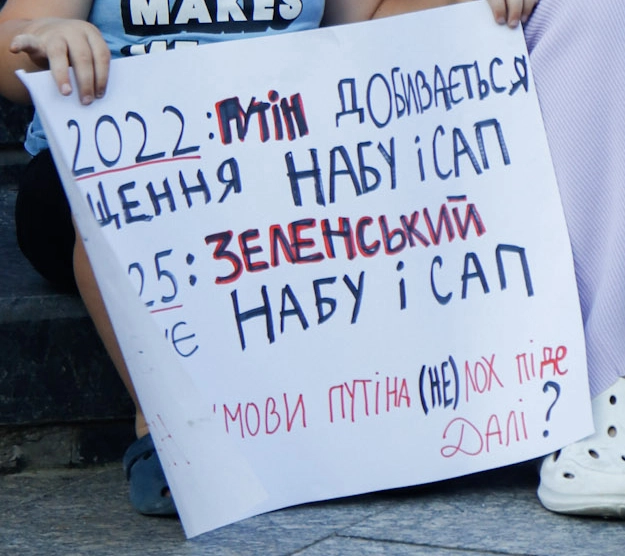 MAKES
2022: ПУТІН ДОБИВАЄТЬСЯ
ЩЕННЯ НАБУ і САП
25: ЗЕЛЕНСЬКИЙ
НАБУ і САП
МОВИ ПУТІНА (НЕ) ЛОХ піде
ДАЛІ?